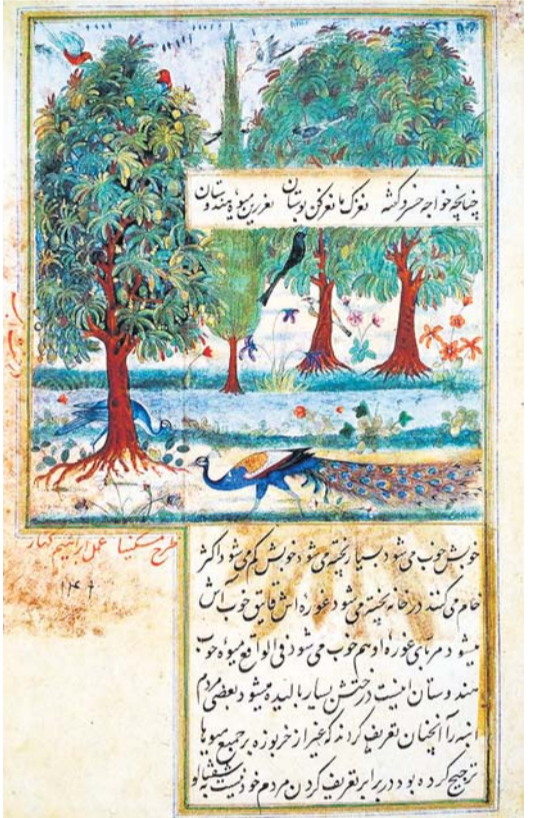 چنانچه خواجه خسرو گفته نغزک ما نغز کن بوستان نغزترین میوهٔ هندوستان
طرح مسکینا عمل ابراهیم کهار
خوبش خوب می‌شود بسیار پخته می‌شود خوبش کم می‌شود اکثر
خام می‌کنند در خانه پخته می‌شود غوره‌اش قاتق خوب‌اش
میشود مربای غوره او هم خوب می‌شود فی الواقع میوه خوب
هندوستان اینست درختش بسیار بالیده میشود بعضی مردم
انبه را آنچنان تعریف کرده‌اند که غیر از خربوزه بر جمیع میوها
ترجیح کرده بود در برابر تعریف کردن مردم خود نیست به شفتالو